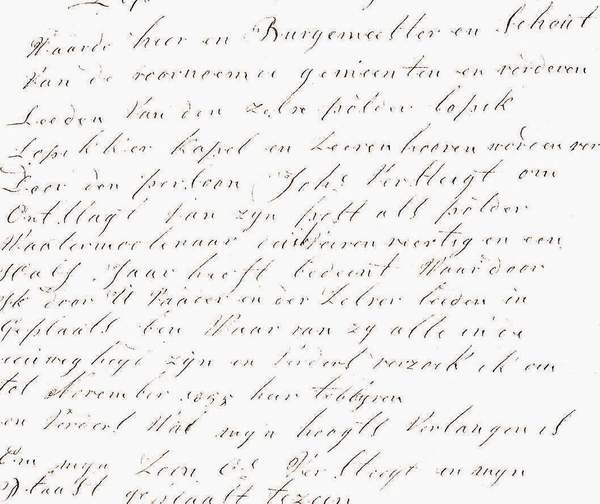 Waarde heer en Burgemeester en Schout
Van de voornoemde gemeenten en verderen
Leeden Van den zelve pólder lopik
Lopikker kapel en Zeeven hooven worden ver
Door den persoon Johs Versluyt om
Ontslagt van zyn post als pólder
Waatermoolenaar veertig en een
Half Jaar heeft bedient Waar door
Ik door U Vaader en der Zelver leeden in
Geplaats ben Waar van zy alle in de
eeuwegheyd zyn en Verders verzoek ik om
tot November hier te blyven
en Verders Wat myn hoogts Verlangen is
Om myn Zoon Versluyt en myn
Plaast geplaast te zeen